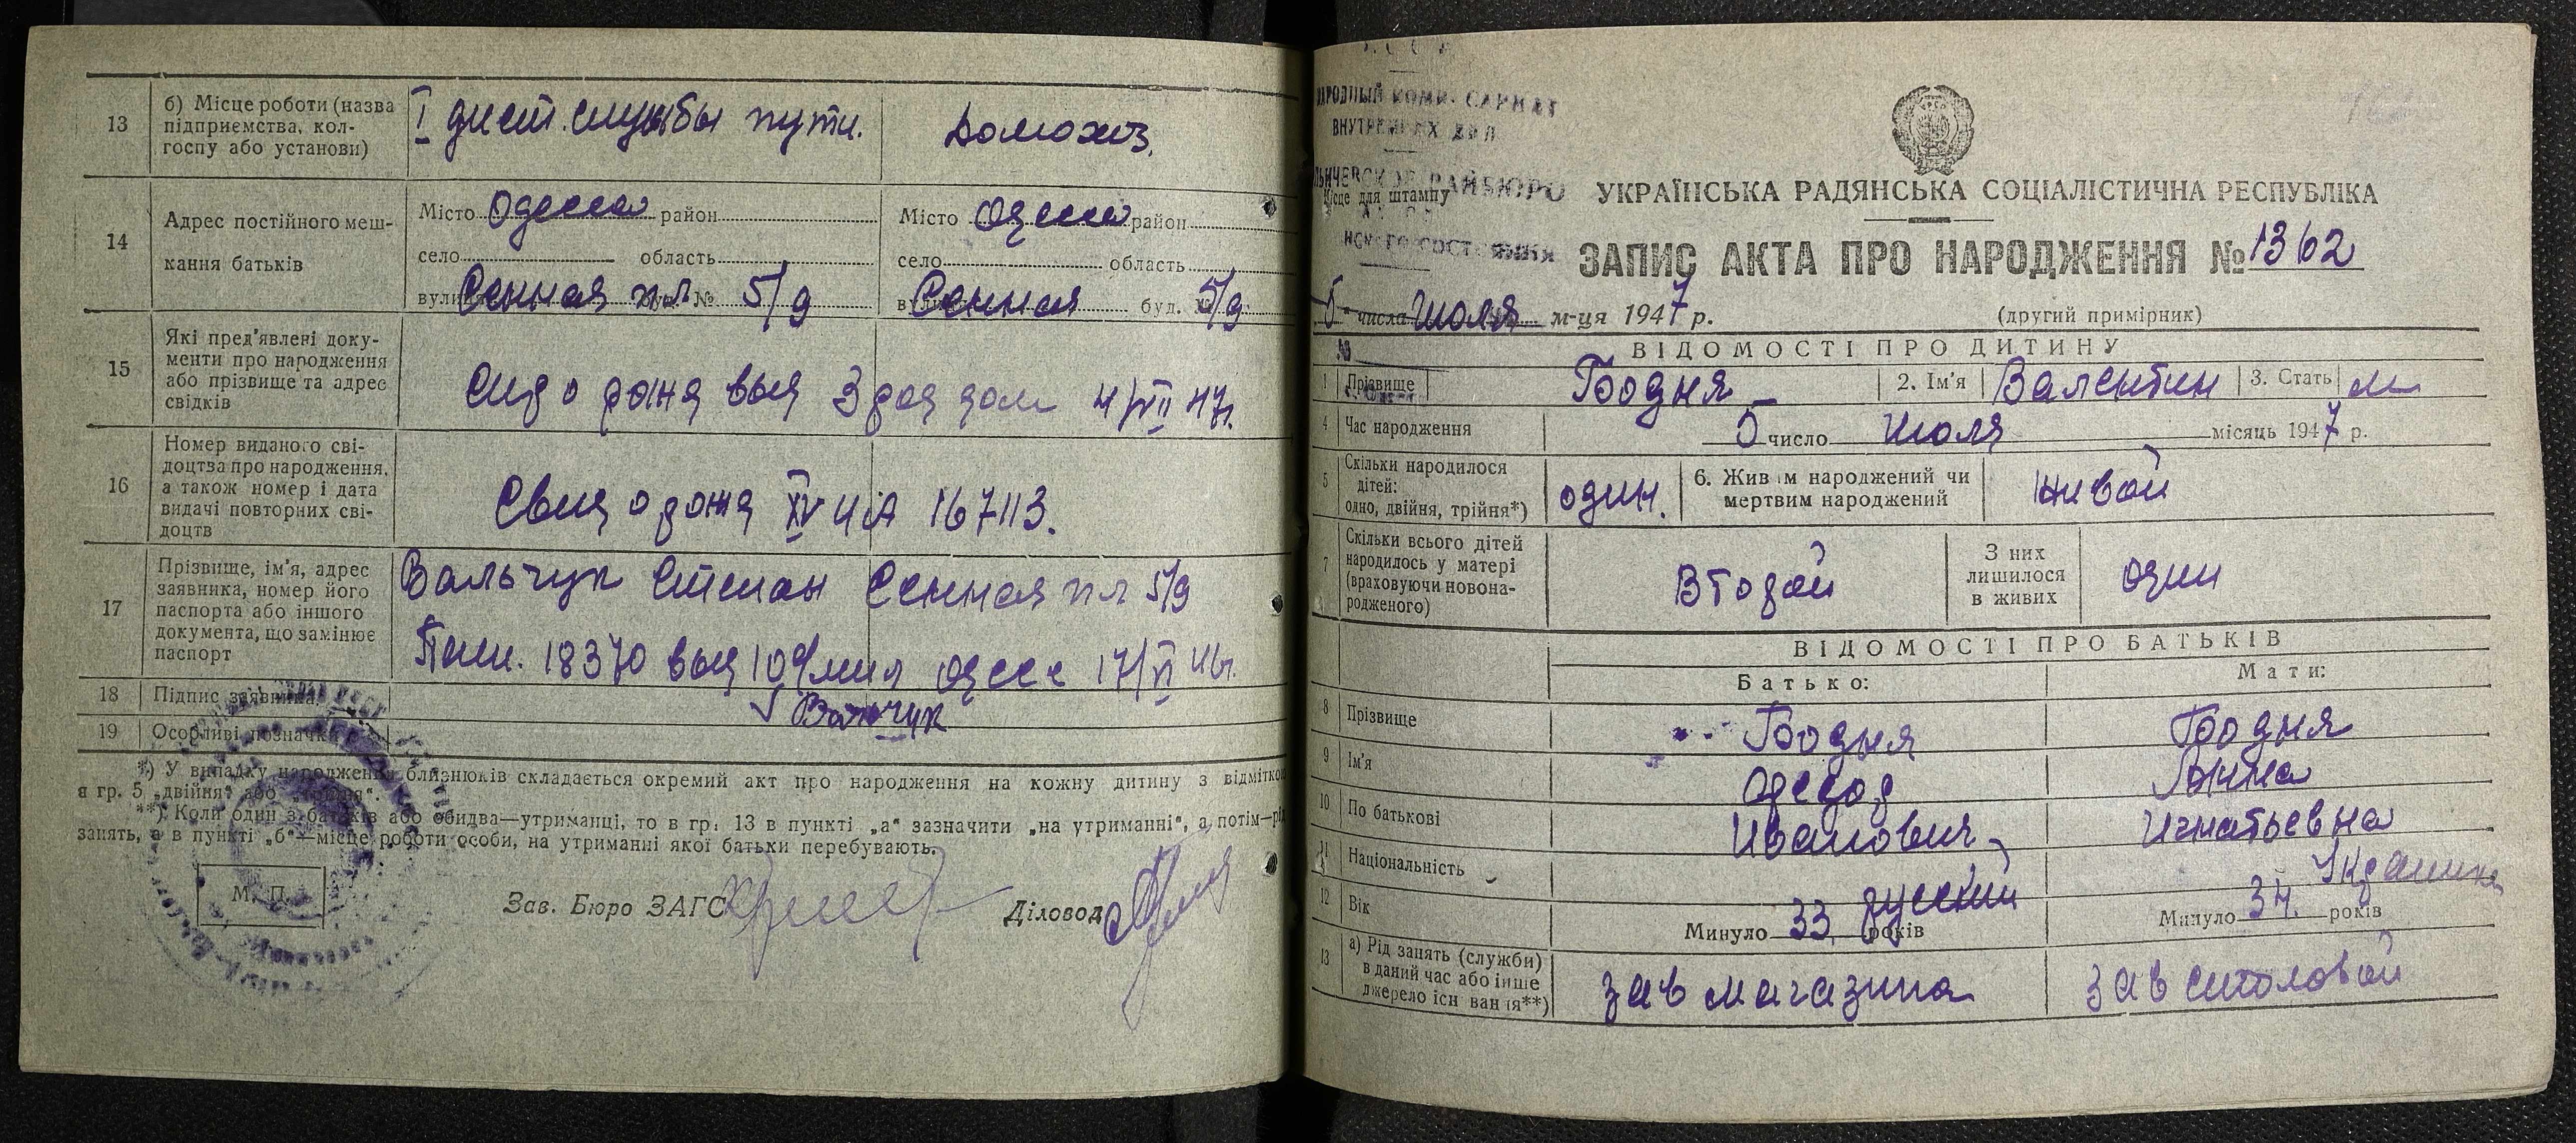 13
б) Місце роботи (назва
підприємства, кол-
госпу або установи)
I дист. службы пути.
Домохоз.
14
Адрес постійного меш-
кання батьків
Місто Одесса район
село область
вулиця Сенная пл № 5/9
Місто Одесса район
село область
вулиця Сенная буд. № 5/9
15
Які пред'явлені доку-
менти про народження
або прізвище та адрес
свідків
выд 3 род дом 4/VII 47г.
16
Номер виданого сві-
доцтва про народження,
а також номер і дата
видачі повторних сві-
доцтв
Свид о рожд XV ЦА 167113.
17
Прізвище, ім'я, адрес
заявника, номер його
паспорта або іншого
документа, що замінює
паспорт
Вальчук Степан Сенная пл 5/9
18370 выд 10 о/мил Одесс 17/VI 46г.
18 Підпис заявника
Вальчук
19 Особливі позначки
*) У випадку народження близнюків складається окремий акт про народження на кожну дитину з відміткою
в гр. 5 „двійня" або „трійня".
**) Коли один з батьків або обидва—утриманці, то в гр. 13 в пункті „а" зазначити „на утриманні", а потім—рід
занять, а в пункті „б"—місце роботи особи, на утриманні якої батьки перебувають.
М. П.
Зав. Бюро ЗАГС
Діловод
НАРОДНЫЙ КОМИССАРИАТ
ВНУТРЕННИХ ДЕЛ
РАЙБЮРО
Місце для штампу
СОСТОЯНИЯ
УКРАЇНСЬКА РАДЯНСЬКА СОЦІАЛІСТИЧНА РЕСПУБЛІКА
ЗАПИС АКТА ПРО НАРОДЖЕННЯ № 1362
5 числа Июля м-ця 1947 р.
(другий примірник)
ВІДОМОСТІ ПРО ДИТИНУ
1 Прізвище Бодня 2. Ім'я Валентин 3. Стать м
4 Час народження 5 число Июля місяць 1947 р.
5 Скільки народилось
дітей:
одно, двійня, трійня*)
один.
6. Живим народжений чи
мертвим народжений
Живой
7 Скільки всього дітей
народилось у матері
(враховуючи новона-
родженого)
Второй
З них
лишилося
в живих
один
ВІДОМОСТІ ПРО БАТЬКІВ
Батько: Мати:
8 Прізвище Бодня Бодня
9 Ім'я
10 По батькові Иванович Игнатьевна
11 Національність русский Украинка
12 Вік Минуло 33 років Минуло 34. років
13 а) Рід занять (служби)
в даний час або інше
джерело існування**)
зав магазина зав столовой